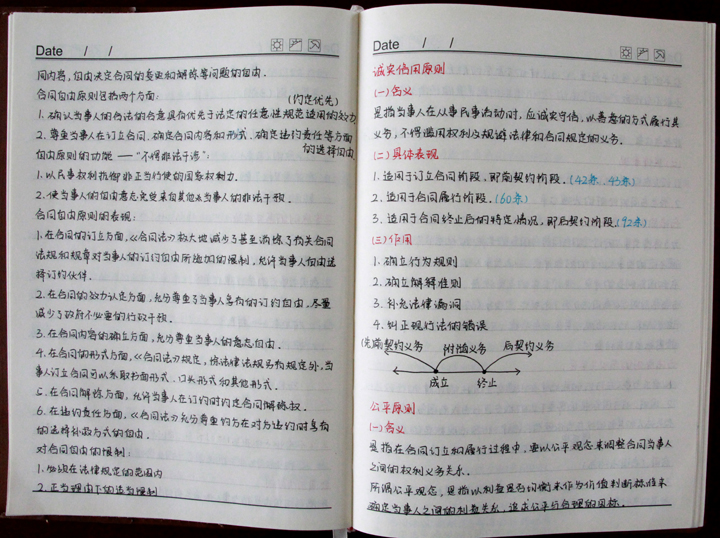 Date / /
同内容,自由决定合同的变更和解除等问题的自由.
合同自由原则包括两个方面:
(约定优先)
1. 确认当事人的合法的合意具有优先于法定的任意性规范适用的效力.
2. 尊重当事人在订立合同、确定合同内容和形式、确定违约责任等方面
的选择自由.
自由原则的功能 —— "不得非法干涉":
1. 以民事权利抵御非正当行使的国家权利力.
2. 使当事人的自由意志免受来自其他当事人的非法干预.
合同自由原则的表现:
1. 在合同的订立方面,《合同法》极大地减少了甚至消除了有关合同
法规和规章对当事人的订约自由所施加的限制,允许当事人自由选
择订约伙伴.
2. 在合同的效力认定方面,充分尊重当事人享有的订约自由,尽量
减少了政府不必要的行政干预.
3. 在合同内容的确立方面,充分尊重当事人的意志自由.
4. 在合同的形式方面,《合同法》规定,除法律法规另有规定外,当
事人订立合同可以采取书面形式、口头形式和其他形式.
5. 在合同解除方面,允许当事人在订约时约定合同解除权.
6. 在违约责任方面,《合同法》充分尊重的方在对方违约时享有
的选择补救方式的自由.
对合同自由的限制:
1. 必须在法律规定的范围内
2. 正当理由下的适当限制
Date / /
诚实信用原则
(一)含义
是指当事人在从事民事活动时,应诚实守信,以善意的方式履行其
义务,不得滥用权利及规避法律和合同规定的义务.
(二)具体表现
1. 适用于订立合同阶段,即前契约阶段.(42条、43条)
2. 适用于合同履行阶段.(60条)
3. 适用于合同终止后的特定情况,即后契约阶段.(92条)
(三)作用
1. 确立行为规则
2. 确立解释准则
3. 补充法律漏洞
4. 纠正现行法的错误
(先)前契约义务 附随义务 后契约义务
成立 终止
公平原则
(一)含义
是指在合同订立和履行过程中,要以公平观念来调整合同当事人
之间的权利义务关系.
所谓公平观念,是指以利益是否均衡来作为价值判断标准来
确定当事人之间的利益关系,追求公平与合理的目标.